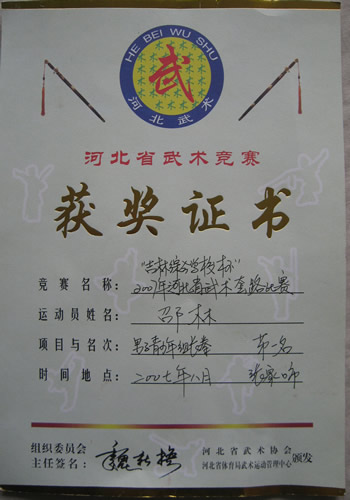 HE BEI WU SHU
武
河北武术
河北省武术竞赛
获奖证书
竞赛名称：2007年河北省武术套路比赛
运动员姓名：邵林
项目与名次：男子青少年组长拳 第一名
时间地点：2007年八月
组织委员会
主任签名：
河北省武术协会
河北省体育局武术运动管理中心 颁发